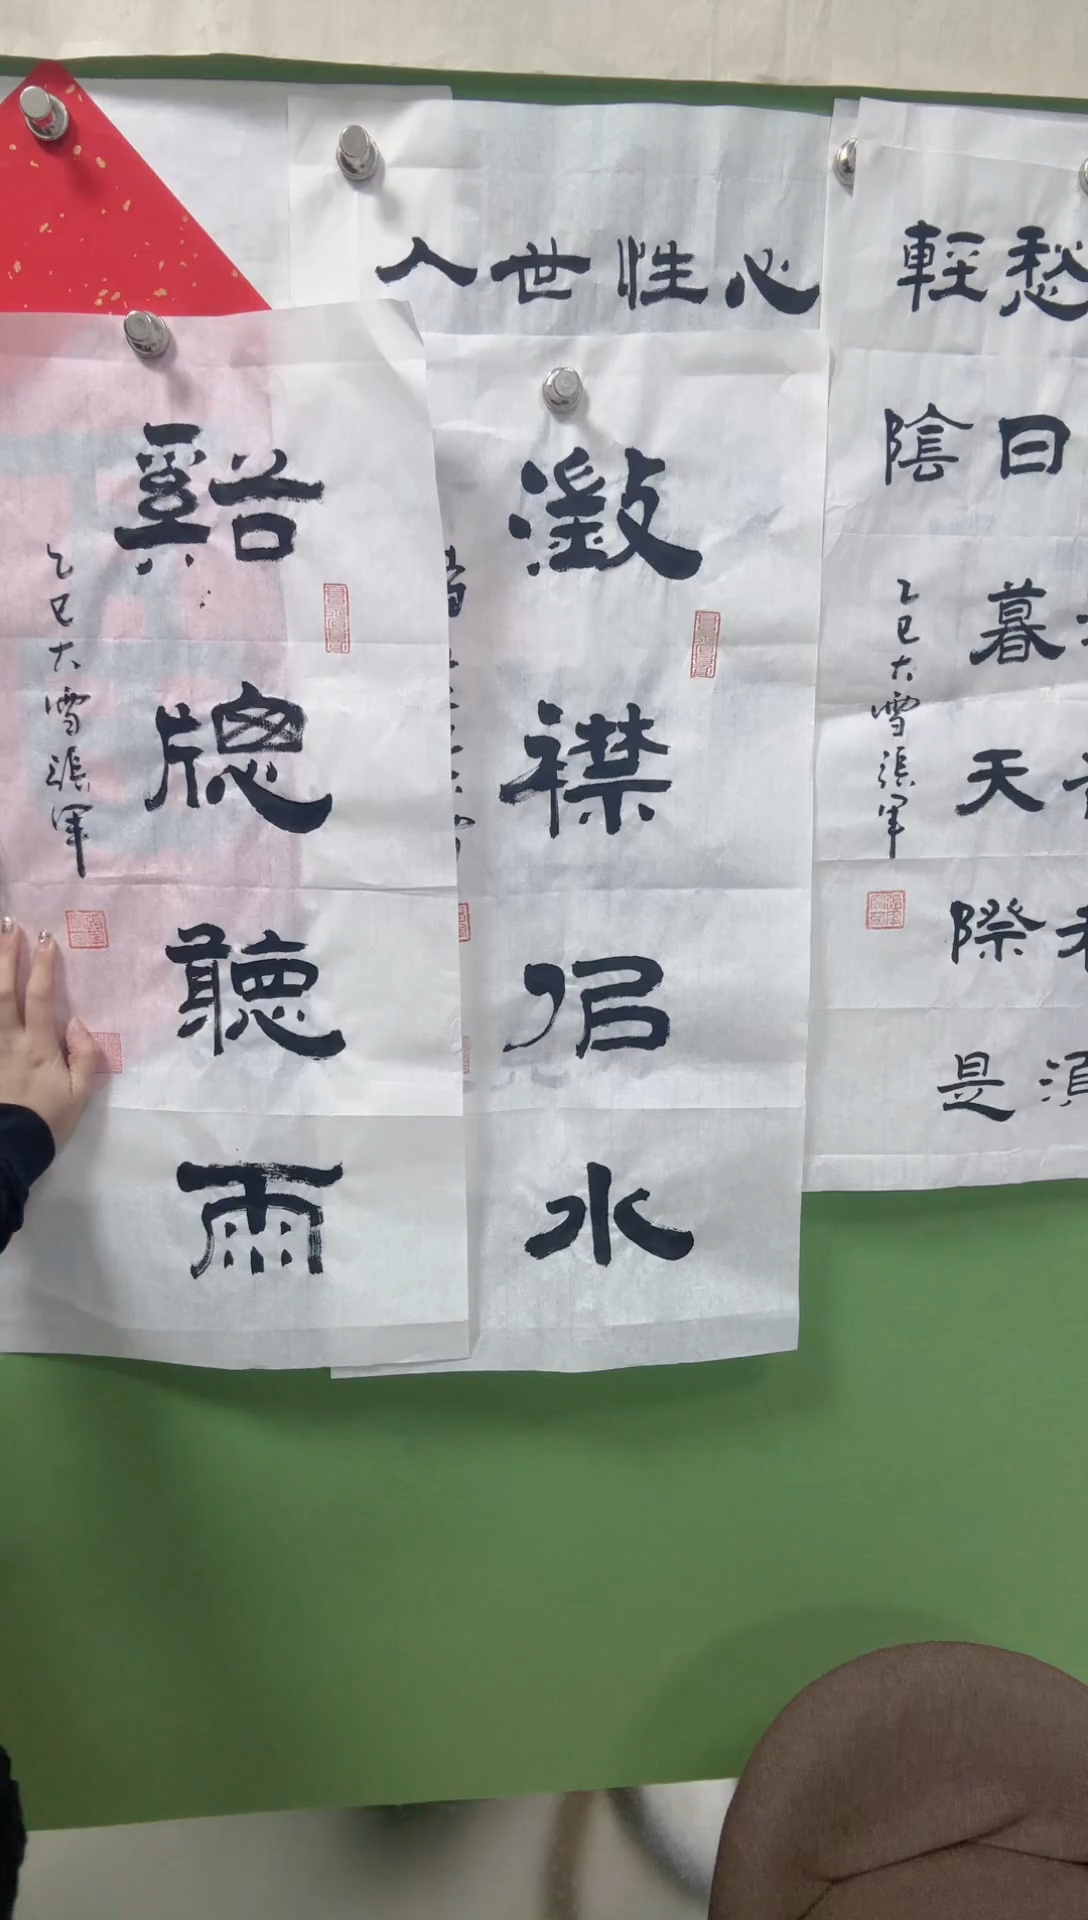 愁日暮天際是
輕陰
乙巳大雪張軍
心
性
世
人
澂襟佀水
谿牕聽雨
乙巳大雪張軍